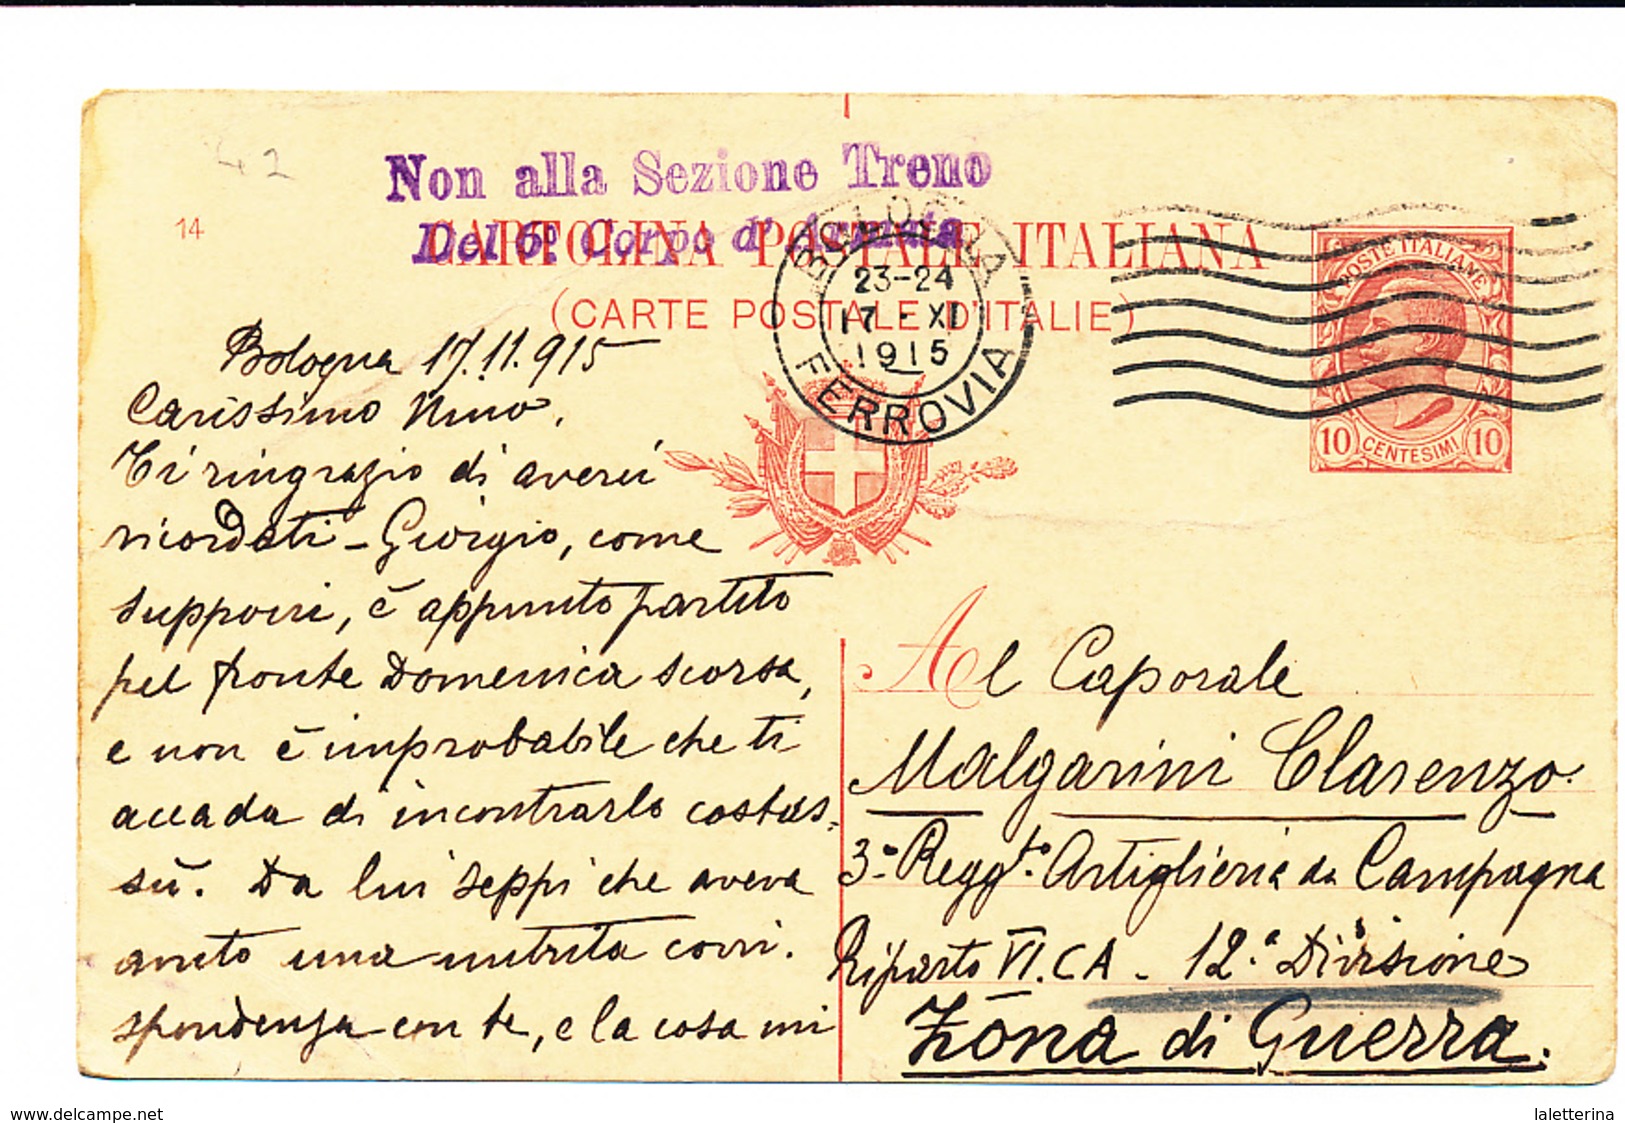 42
Non alla Sezione Treno
Del 6º Corpo d'Armata
14
CARTOLINA POSTALE ITALIANA
(CARTE POSTALE D'ITALIE)
BOLOGNA
23-24
17 - XI
1915
FERROVIA
POSTE ITALIANE
10 CENTESIMI 10
Bologna 17.11.915
Carissimo Nino,
Ti ringrazio di averci
ricordati - Giorgio, come
supponi, è appunto partito
pel fronte Domenica scorsa,
e non è improbabile che ti
accada di incontrarlo costas-
sù. Da lui seppi che aveva
avuto una nutrita corri-
spondenza con te, e la cosa mi
Al Caporale
Malgarini Clarenzo.
3º Regg.to Artiglieria da Campagna
Riparto VI. C A - 12.a Divisione
Zona di Guerra.
delcampe.net
laletterina